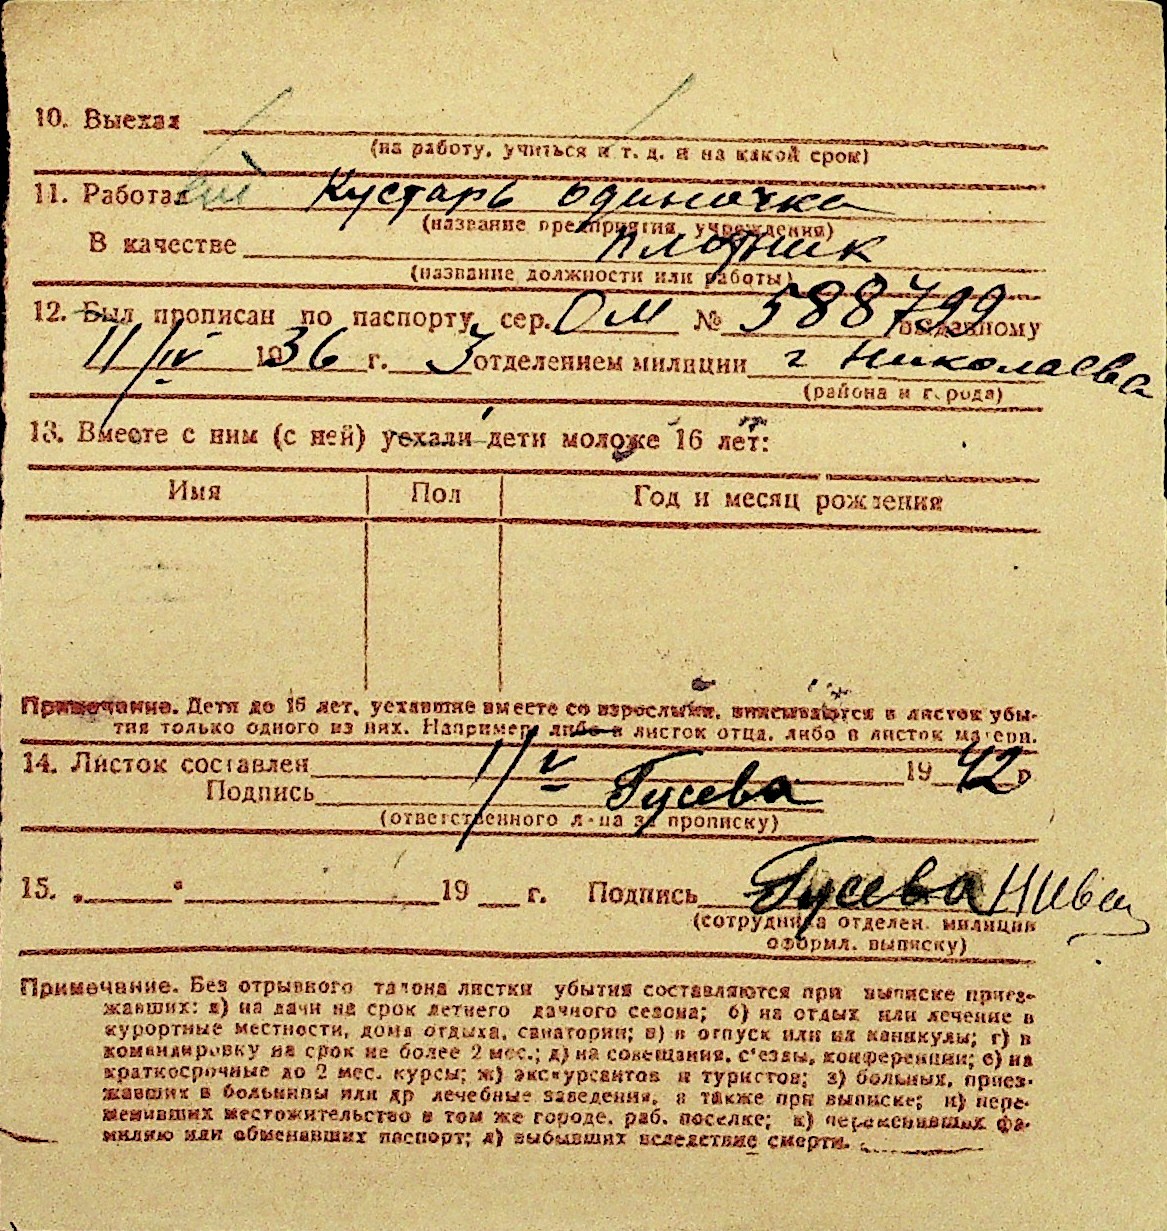 10. Выехал
(на работу, учиться и т. д. и на какой срок)
11. Работал Кустарь одиночка
(название предприятия, учреждения)
В качестве плотник
(название должности или работы)
12. Был прописан по паспорту сер. ОМ № 588799 выданному
11/IV 1936 г. 3 отделением милиции г Николаева
(района и города)
13. Вместе с ним (с ней) уехали дети моложе 16 лет:
Имя Пол Год и месяц рождения
Примечание. Дети до 16 лет, уехавшие вместе со взрослыми, вписываются в листок убы-
тия только одного из них. Например либо в листок отца, либо в листок матери.
14. Листок составлен 11/V 1942 г
Подпись Гусева
(ответственного л-ца за прописку)
15. „ “ 19 г. Подпись Гусева
(сотрудника отделен. милиции
оформл. выписку)
Примечание. Без отрывного талона листки убытия составляются при выписке приез-
жавших: а) на дачи на срок летнего дачного сезона; б) на отдых или лечение в
курортные местности, дома отдыха, санатории; в) в отпуск или на каникулы; г) в
командировку на срок не более 2 мес.; д) на совещания, с'езды, конференции; е) на
краткосрочные до 2 мес. курсы; ж) экскурсантов и туристов; з) больных, приез-
жавших в больницы или др лечебные заведения, а также при выписке; и) пере-
менивших местожительство в том же городе, раб. поселке; к) переменивших фа-
милию или обменавших паспорт; л) выбывших вследствие смерти.